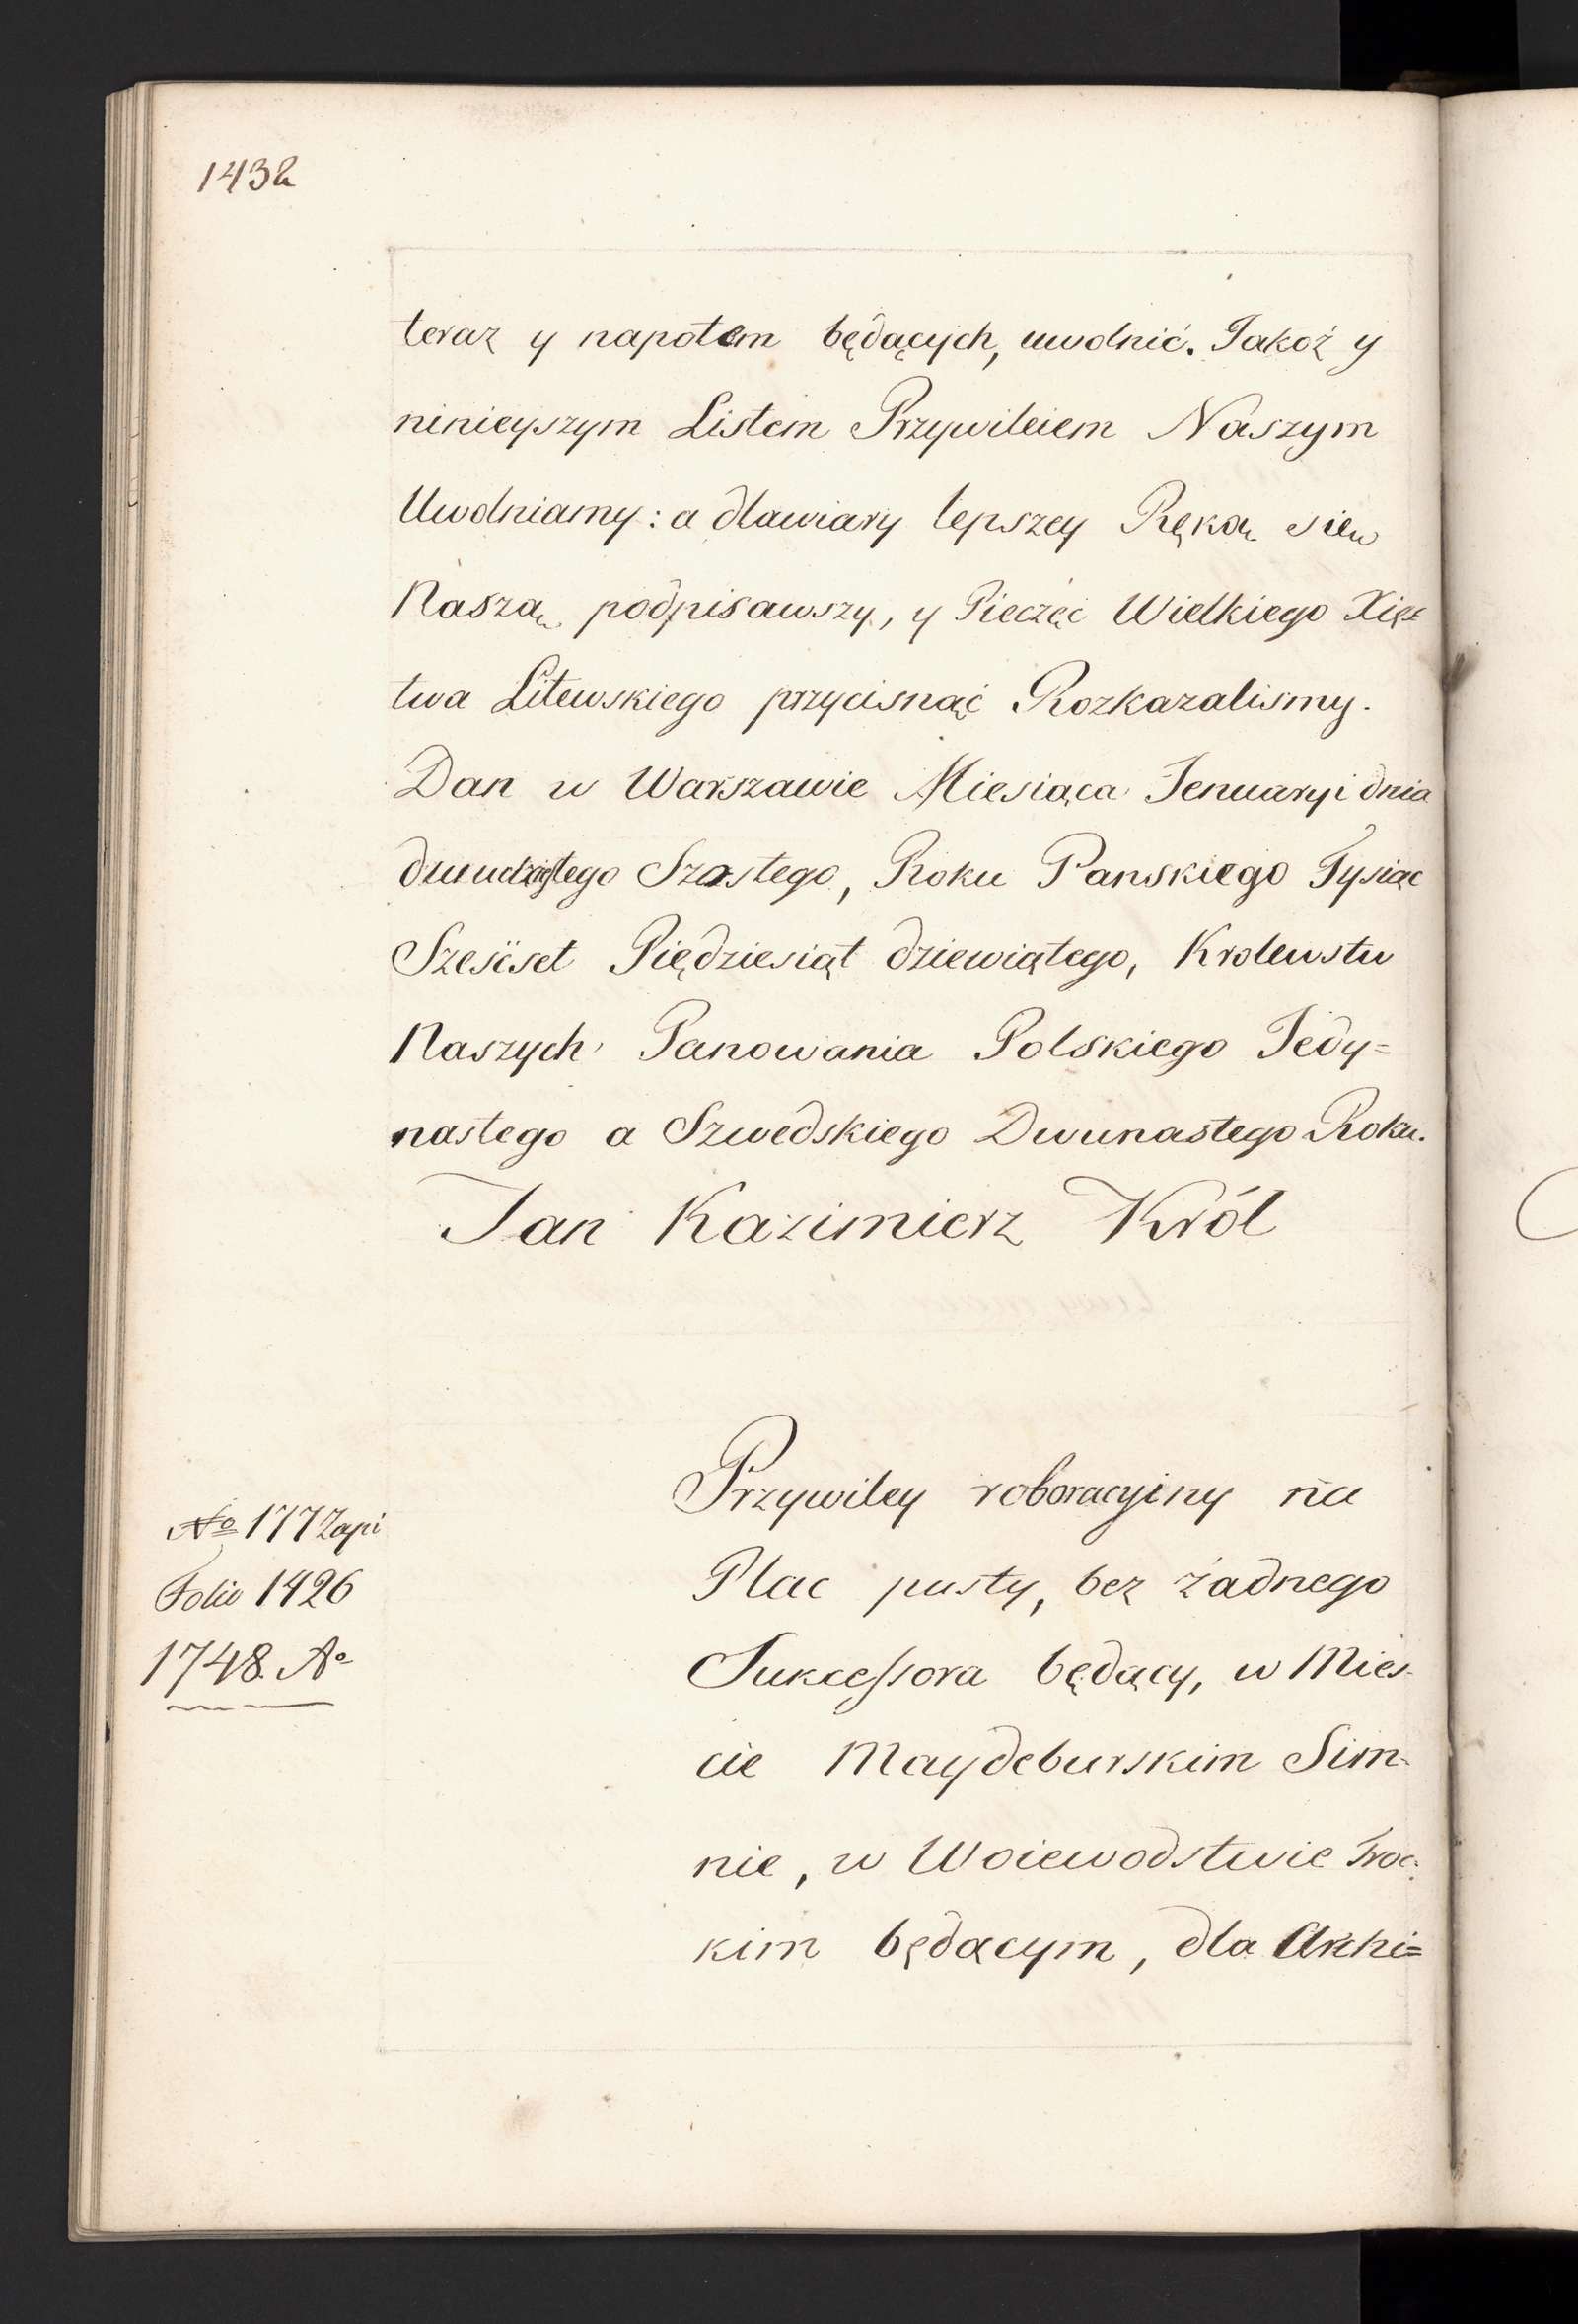 1432
teraz y napotem będących, uwolnić. Jakoż y
ninieyszym Listem Przywileiem Naszym
Uwolniamy: a dlawiary lepszey Ręką siew
Naszą podpisawszy, y Pieczęć Wielkiego Xięs
twa Litewskiego przycisnąć Rozkazalismy.
Dan w Warszawie Miesiąca Jenuaryi dnia
dwudziestego Szostego, Roku Panskiego Tysiąc
Szesćset Piędziesiąt dziewiątego, Krolewstw
Naszych Panowania Polskiego Jedy=
nastego a Szwedskiego Dwunastego Roku.
Jan Kazimierz Król
№ 177 Zapi
Folio 1426
1748. Aº
Przywiley roboracyiny na
Plac pusty, bez żadnego
Sukcessora będący, w Mies-
cie Maydeburskim Sim-
nie, w Woiewodstwie Troc-
kim będącym, dla Archi=